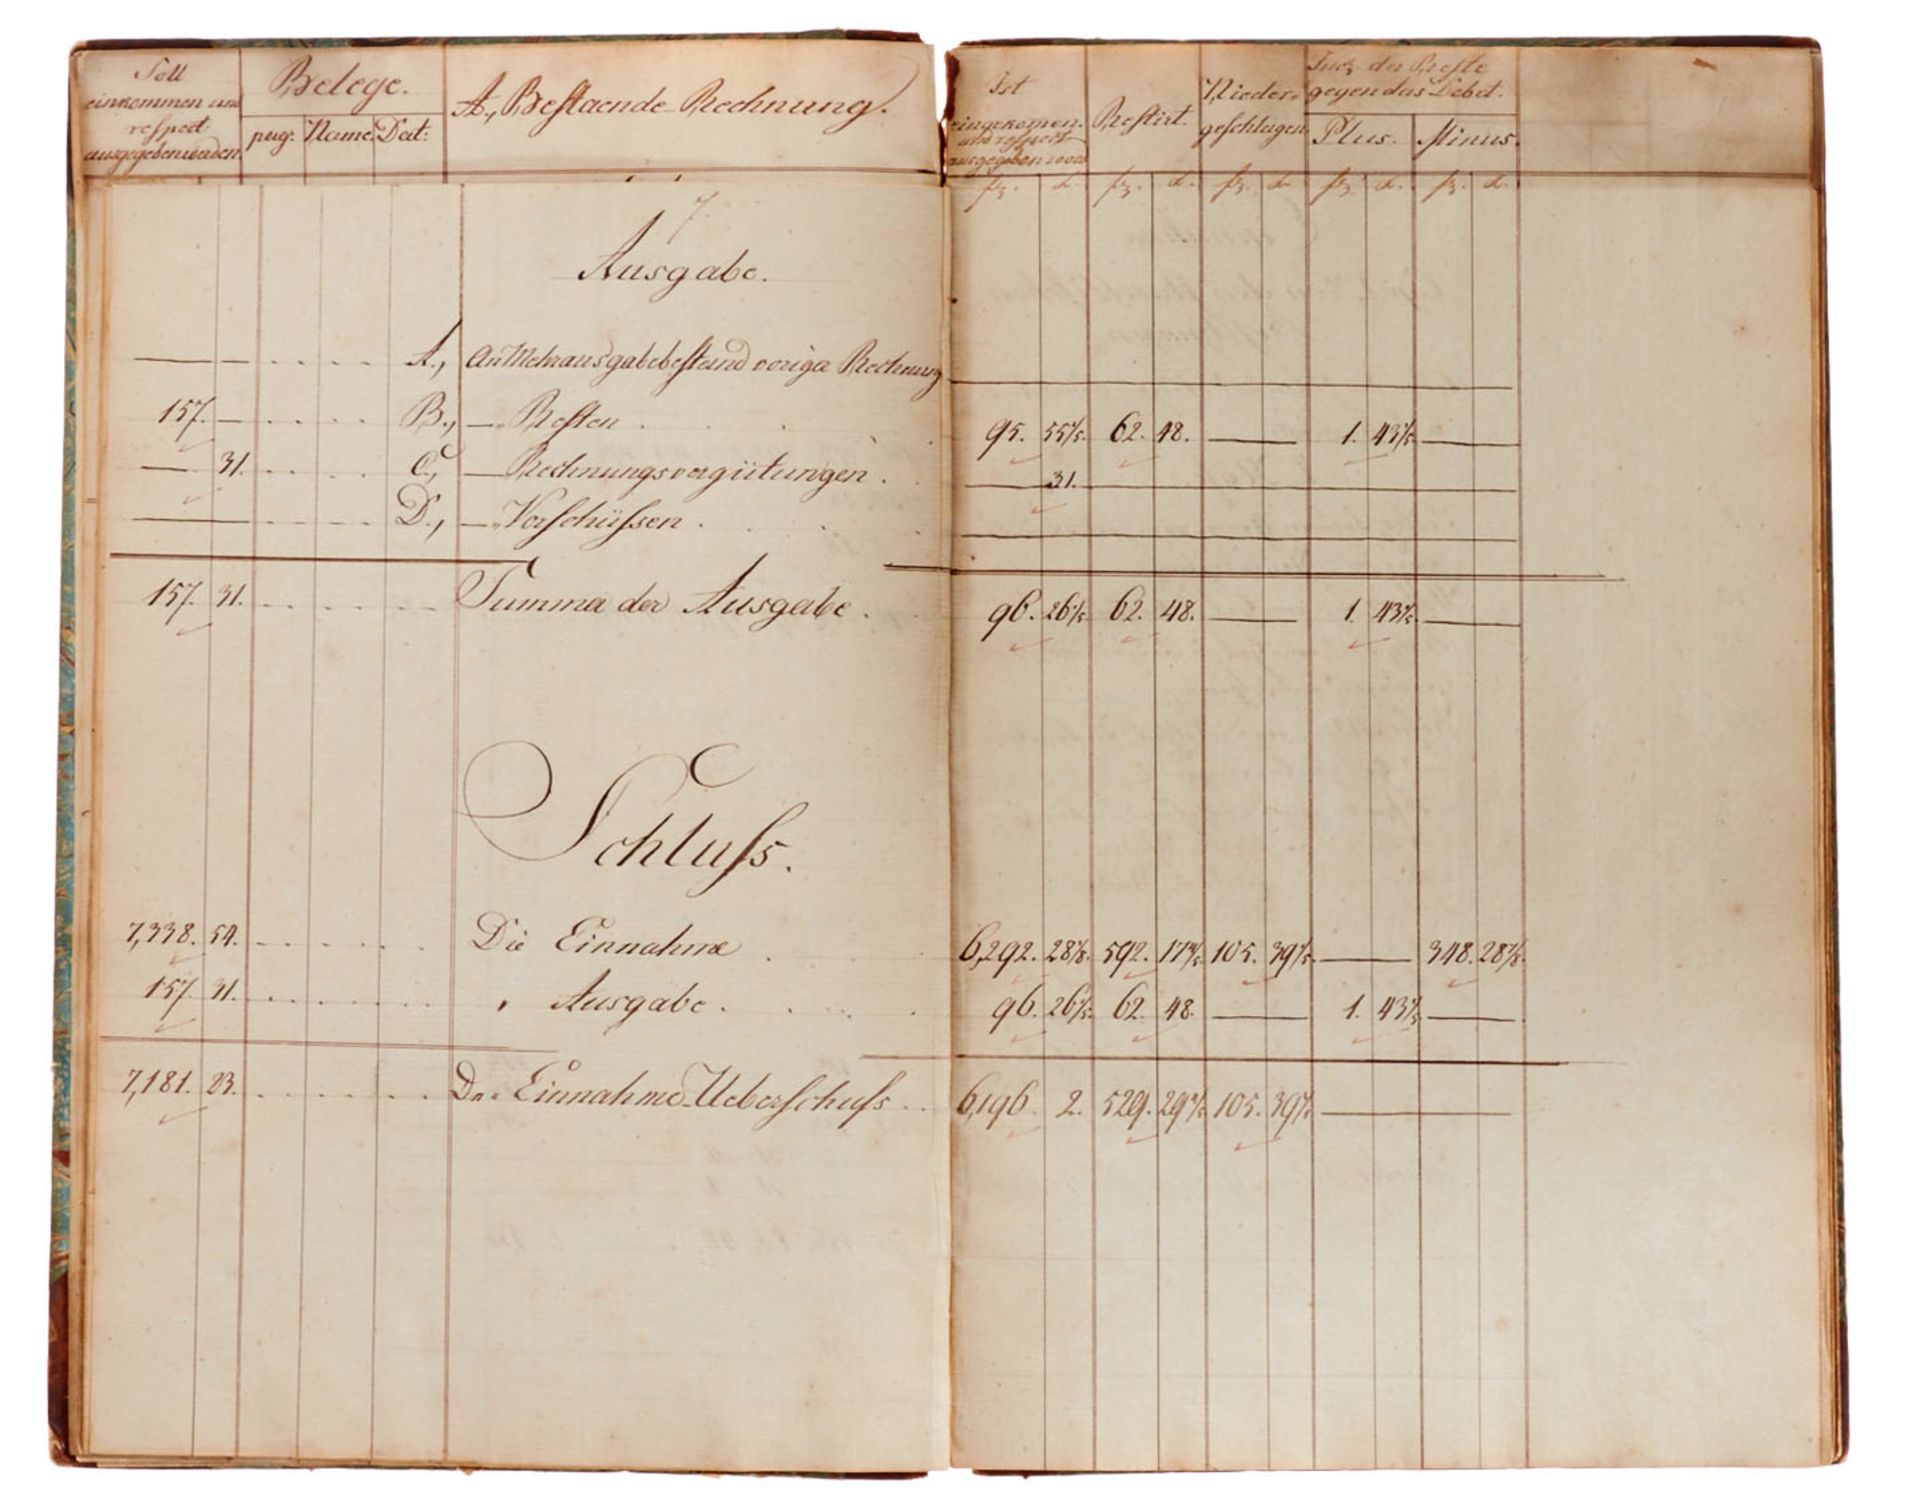 Soll
einkommen und
respect:
ausgegeben werden.
Belege.
pag: Name. Dat:
A., Bestaende-Rechnung.
Ist
eingekomen.
und respect.
ausgegeben word
Restirt.
Nieder-
geschlagen
der Reste
gegen das Debet.
Plus. Minus.
fz. d. fz. d. fz. d. fz. d. fz. d.
7.
Ausgabe.
— — A., An Mehrausgabebestand voriger Rechnung
157. — B., — „ Resten . 95. 55 1/5. 62. 48. — 1. 43 4/5. —
— 31. C., — Rechnungsvergütungen . — 31. —
— D., — „ Vorschüssen .
157. 31. Summa der Ausgabe . 96. 26 1/5. 62. 48. — 1. 43 4/5. —
Schluss.
7,338. 54. Die Einnahme . 6,292. 28 592. 17 105. 39 — 348. 28
157. 31. „ Ausgabe . 96. 26 1/5. 62. 48. — 1. 43 4/5. —
7,181. 23. Einnahme-Ueberschuss . 6,196. 2. 529. 29 105. 39 —